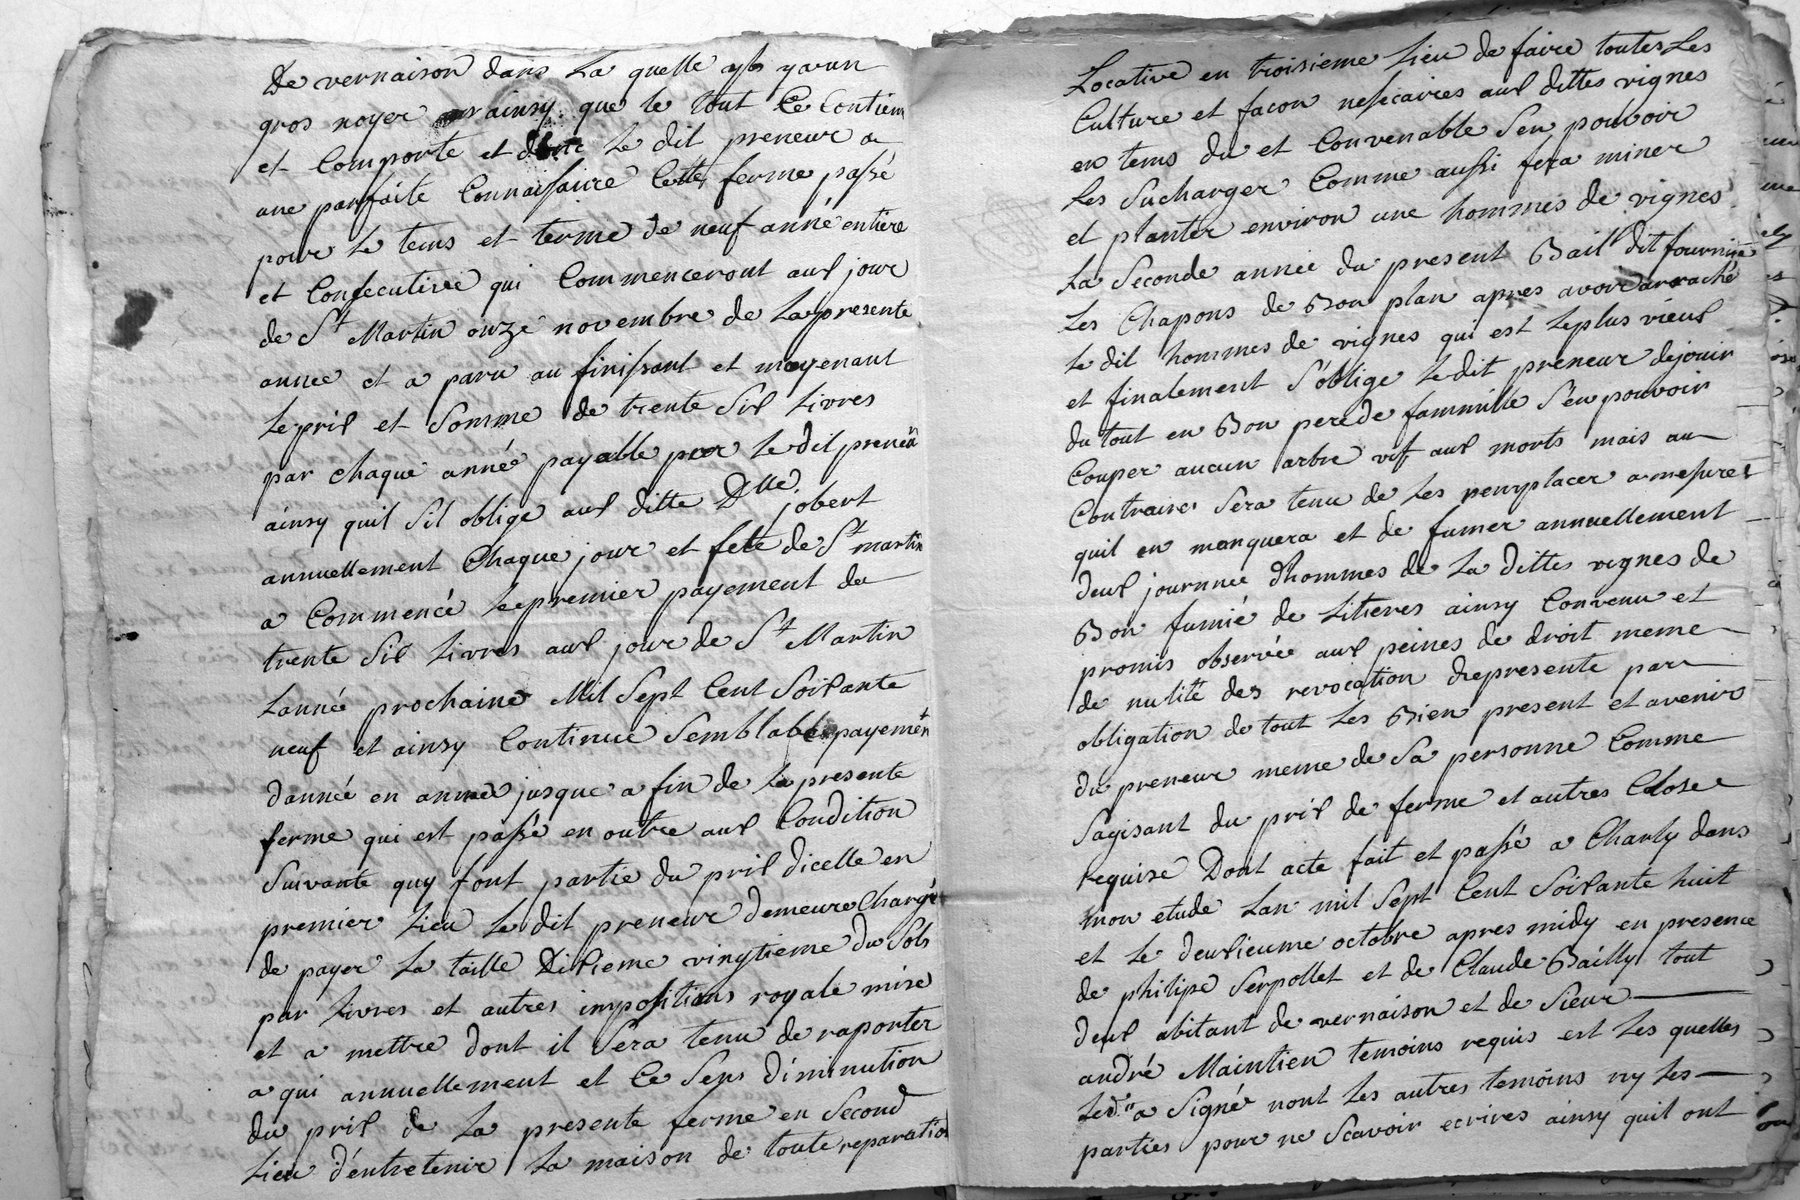 De vernaison dans La quelle yls ya un
gros noyer ainsy que le tout Ce Contien
et Comporte et dont Le dit preneur a
une parfaite Connaissance Cette ferme passé
pour Le tems et terme de neuf anné entiere
et Consecutive qui Commenceront aux jour
de St Martin onze novembre de La presente
annee et a paru au finissant et moyenant
Le prix et Somme de trente Six Livres
par chaque année payable par Le dit preneur
ainsy quil Sil oblige aux ditte Dlle jobert
annuellement Chaque jour et fete de St martin
a Commencé Le premier payement de
trente Six Livres aux jour de St Martin
Lannée prochaine Mil Sept Cent Soixante
neuf et ainsy Continué Semblable payement
dannée en année jusque a fin de La presente
ferme qui est passé en outre aux Condition
Suivante quy font partie du prix dicelle en
premier Lieu Le dit preneur demeure Chargé
de payer La taille Dixieme vingtieme du Sols
par Livres et autres impositions royale mise
et a mettre dont il Sera tenu de raporter
a qui annuellement et Ce Sens diminution
du prix de La presente ferme en Second
Lieu d'entretenir La maison de toute reparation
Locative en troisieme Lieu de faire toutes Les
Culture et facon nesscaires aux dittes vignes
en tems du et Convenable Sen pouvoir
Les Sucharger Comme aussi fera miner
et planter environ une hommes de vignes
La Seconde année du present Bail dit fournire
Les Chapons de Bon plan apres avoir arraché
Le dit hommes de vignes qui est Le plus vieux
et finalement S'oblige Le dit preneur de jouir
du tout en Bon pere de fammille S'en pouvoir
Couper aucun arbre vif aux morts mais au
Contraire Sera tenu de Les remplacer a mesure
quil en manquera et de fumer annuellement
deux journnée d'hommes de La dittes vignes de
Bon fumié de Litieres ainsy Convenu et
promis observée aux peines de droit meme
de nulité des revocation represente par
obligation de tout Les Bien present et avenir
du preneur meme de Sa personne Comme
Sagisant du prix de ferme et autres Close
requise Dont acte fait et passé a Charly dans
mon etude Lan mil Sept Cent Soixante huit
et Le deuxieume octobre apres midy en presence
de philipe Serpollet et de Claude Bailly tout
deux abitant de vernaison et de Sieur
andré Maintien temoins requis est Les quelles
Led. a Signé nont Les autres temoins ny Les
parties pour ne Scavoir ecrires ainsy quil ont